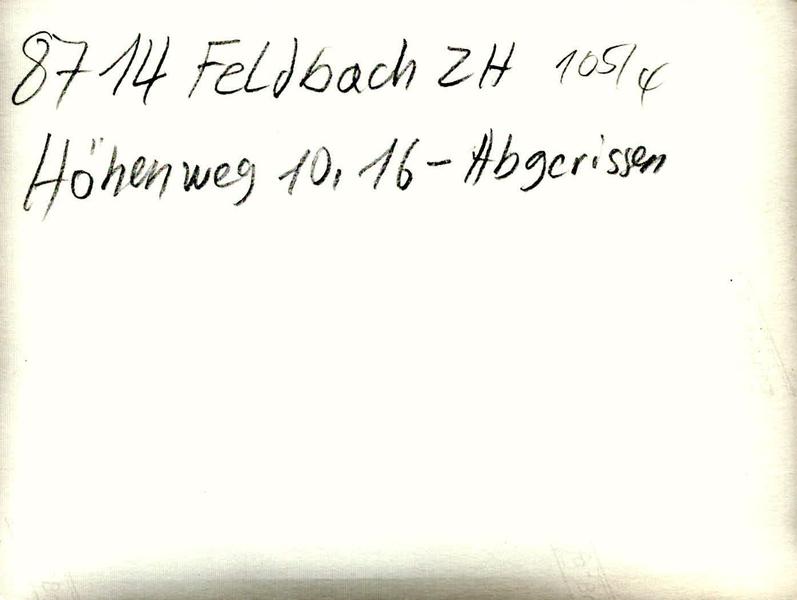 8714 Feldbach ZH 105/4
Höhenweg 10, 16 - Abgerissen